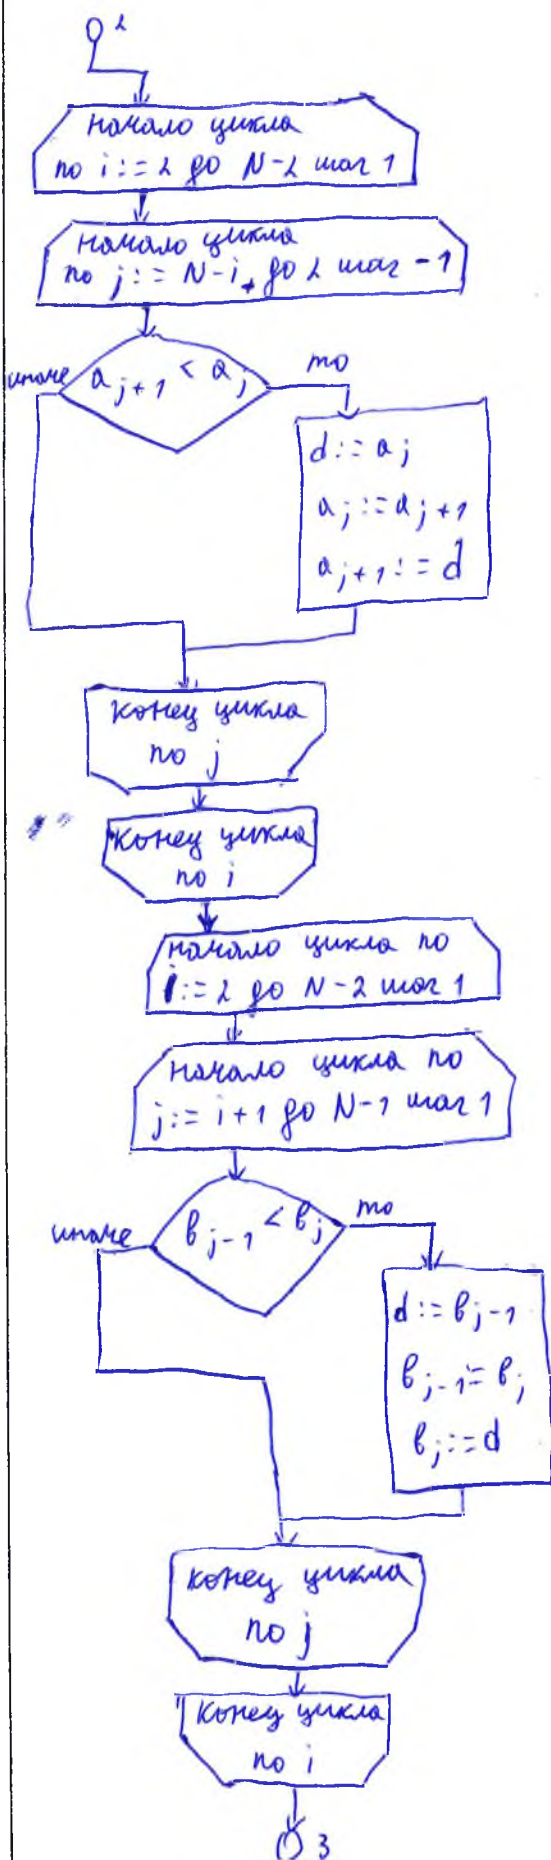 2
начало цикла
по i := 2 до N-2 шаг 1
начало цикла
по j := N-i, до 2 шаг -1
иначе
a j+1 < a j
то
d := a j
a j := a j+1
a j+1 := d
конец цикла
по j
конец цикла
по i
начало цикла по
i := 2 до N-2 шаг 1
начало цикла по
j := i+1 до N-1 шаг 1
иначе
в j-1 < в j
то
d := в j-1
в j-1 := в j
в j := d
конец цикла
по j
конец цикла
по i
3